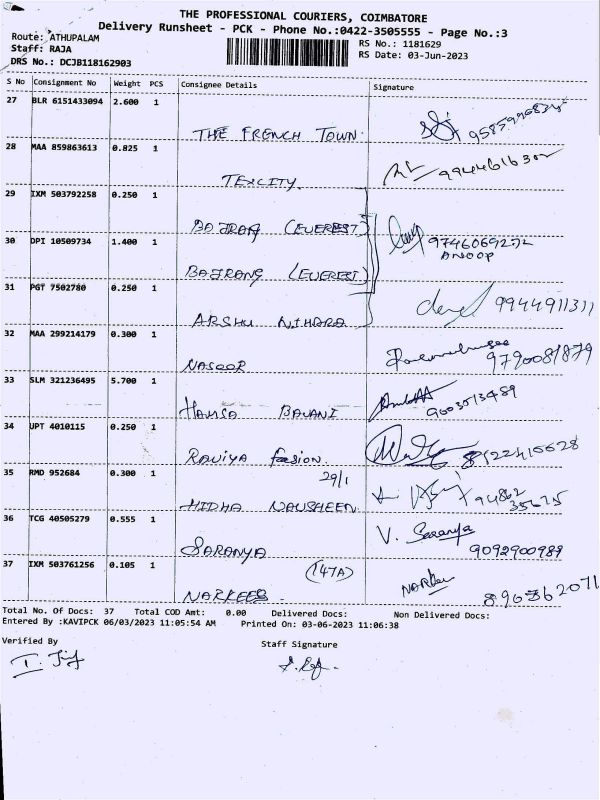 THE PROFESSIONAL COURIERS, COIMBATORE
Delivery Runsheet - PCK - Phone No.:0422-3505555 - Page No.:3
Route: ATHUPALAM
Staff: RAJA
DRS No.: DCJB118162903
RS No.: 1181629
RS Date: 03-Jun-2023
S No Consignment No Weight PCS Consignee Details Signature
27 BLR 6151433094 2.600 1
THE FRENCH TOWN
28 MAA 859863613 0.825 1
TEXCITY
29 IXM 503792258 0.250 1
BAJRANG (EVEREST)
30 DPI 10509734 1.400 1
9746069272
ANOOP
BAJRANG (EVEREST)
31 PGT 7502780 0.250 1
9944911311
ARSHU NIHARA
32 MAA 299214179 0.300 1
NASEER
9790081879
33 SLM 321236495 5.700 1
9003513489
HAMSA BAVANI
34 UPT 4010115 0.250 1
RAVIYA fasion
8122415628
35 RMD 952684 0.300 1
29/1
94862
35675
HIDHA NAUSHEEN
36 TCG 40505279 0.555 1
V. Saranya
SARANYA
9092900989
37 IXM 503761256 0.105 1
(147A)
NARKEES
Total No. Of Docs: 37 Total COD Amt: 0.00 Delivered Docs: Non Delivered Docs:
Entered By :KAVIPCK 06/03/2023 11:05:54 AM Printed On: 03-06-2023 11:06:38
Verified By
Staff Signature